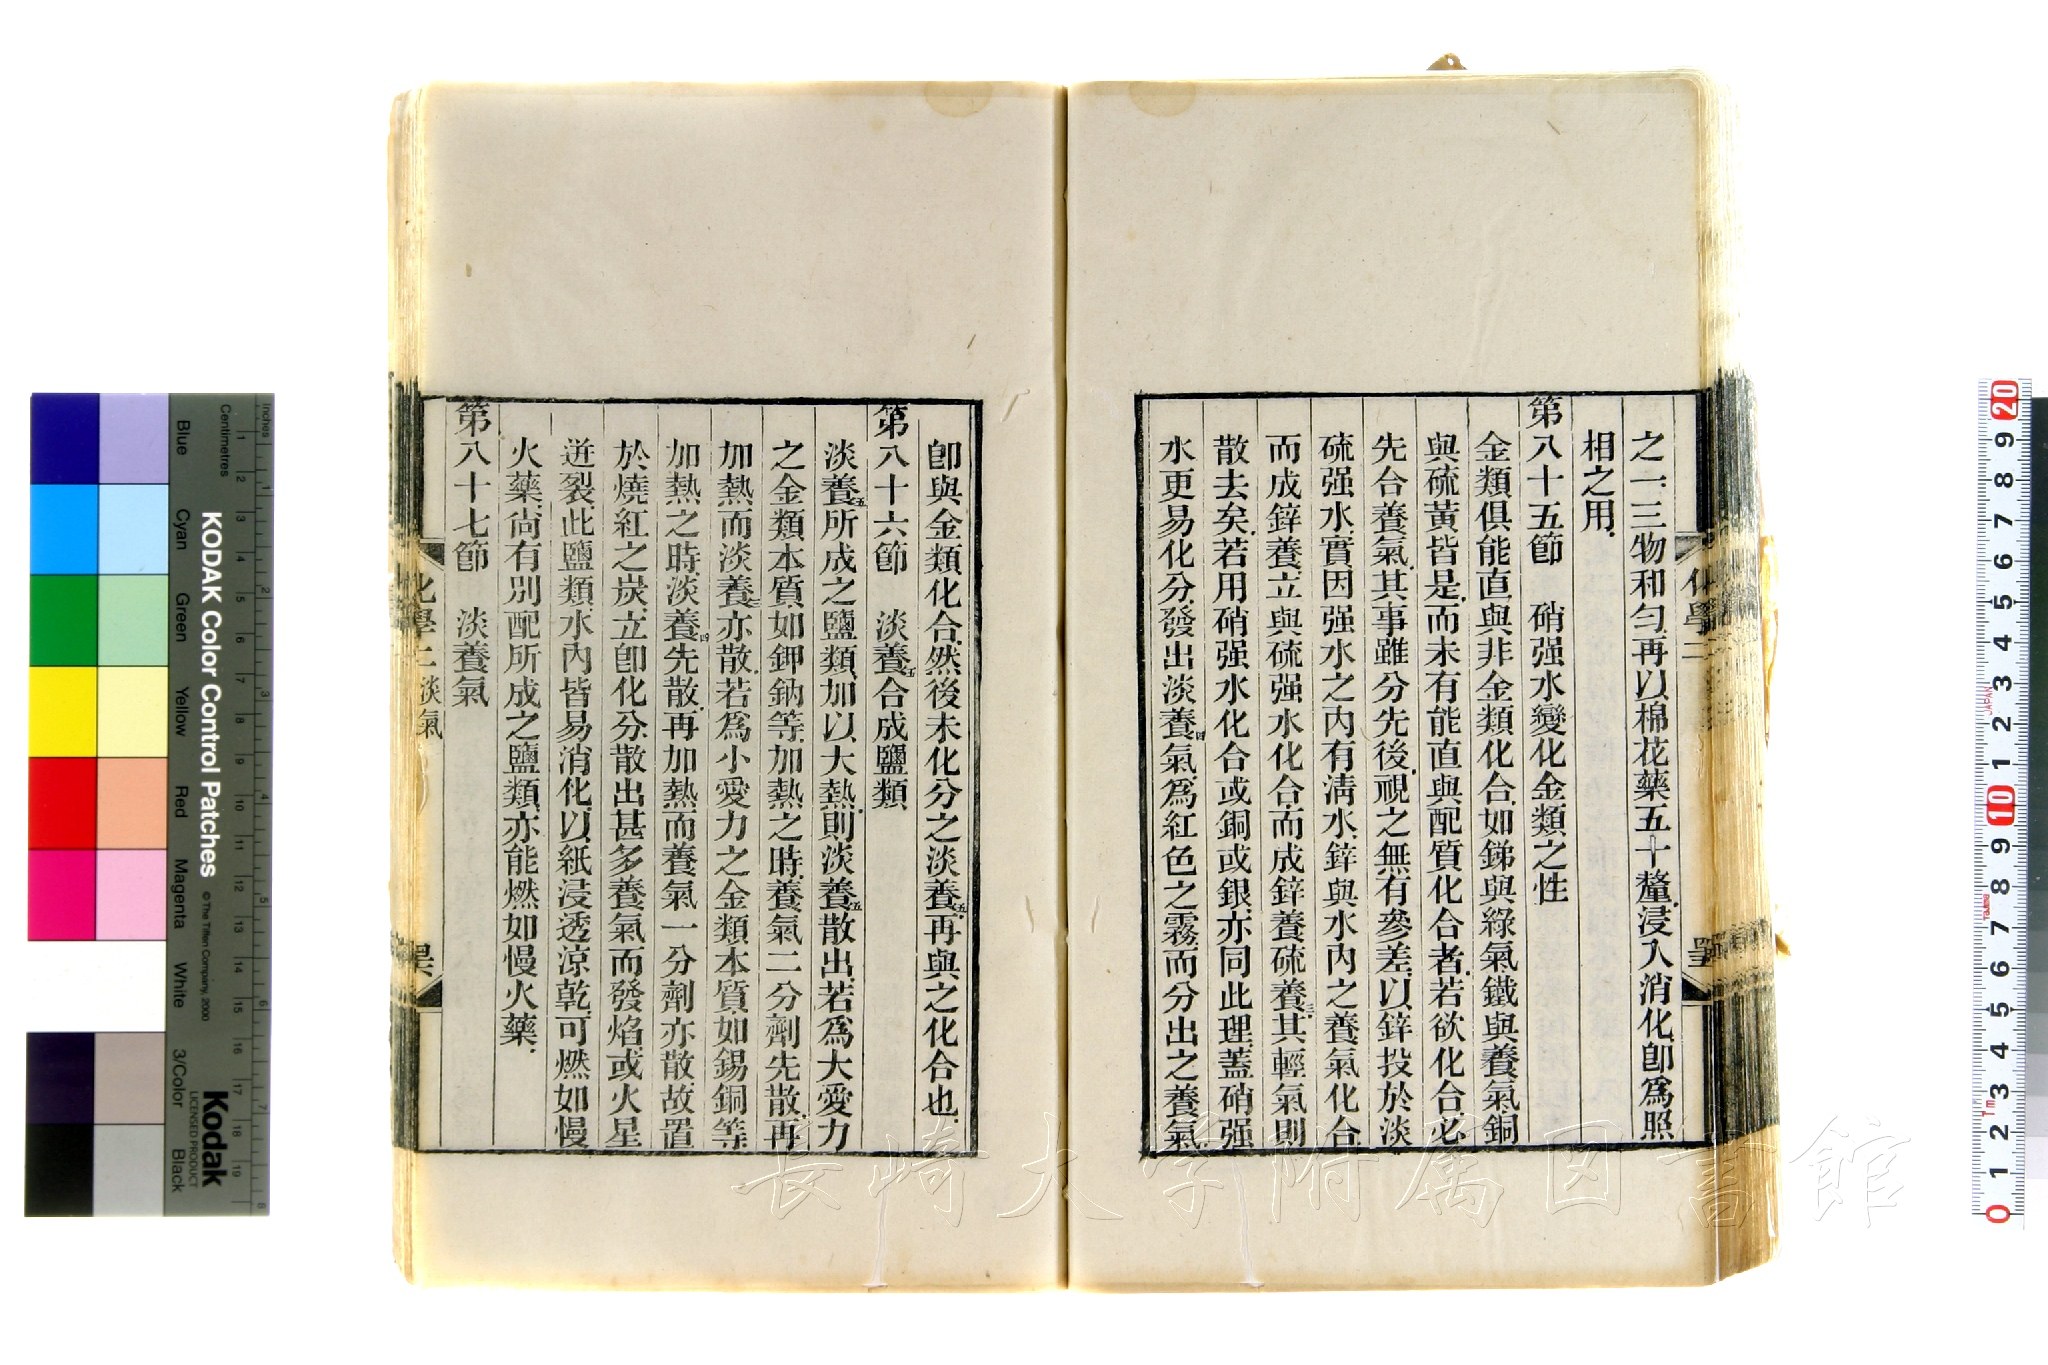 之一三物和勻再以棉花藥五十釐浸入消化卽爲照
相之用
第八十五節　硝强水變化金類之性
金類俱能直與非金類化合如銻與綠氣鐵與養氣銅
與硫黃皆是而未有能直與配質化合者若欲化合必
先合養氣其事雖分先後視之無有參差以鋅投於淡
硫强水實因强水之內有淸水鋅與水內之養氣化合
而成鋅養立與硫强水化合而成鋅養硫養三其輕氣則
散去矣若用硝强水化合或銅或銀亦同此理蓋硝强
水更易化分發出淡養四氣爲紅色之霧而分出之養氣
卽與金類化合然後未化分之淡養五再與之化合也
第八十六節　淡養五合成鹽類
淡養五所成之鹽類加以大熱則淡養五散出若爲大愛力
之金類本質如鉀鈉等加熱之時養氣二分劑先散再
加熱而淡養三亦散若爲小愛力之金類本質如錫銅等
加熱之時淡養四先散再加熱而養氣一分劑亦散故置
於燒紅之炭立卽化分散出甚多養氣而發焰或火星
迸裂此鹽類水內皆易消化以紙浸透涼乾可燃如慢
火藥尚有別配所成之鹽類亦能燃如慢火藥
第八十七節　淡養氣
化學二 淡氣
長崎大学附属図書館
KODAK Color Control Patches
© The Tiffen Company, 2000
Kodak
LICENSED PRODUCT
Inches
Centimetres
Blue
Cyan
Green
Yellow
Red
Magenta
White
3/Color
Black